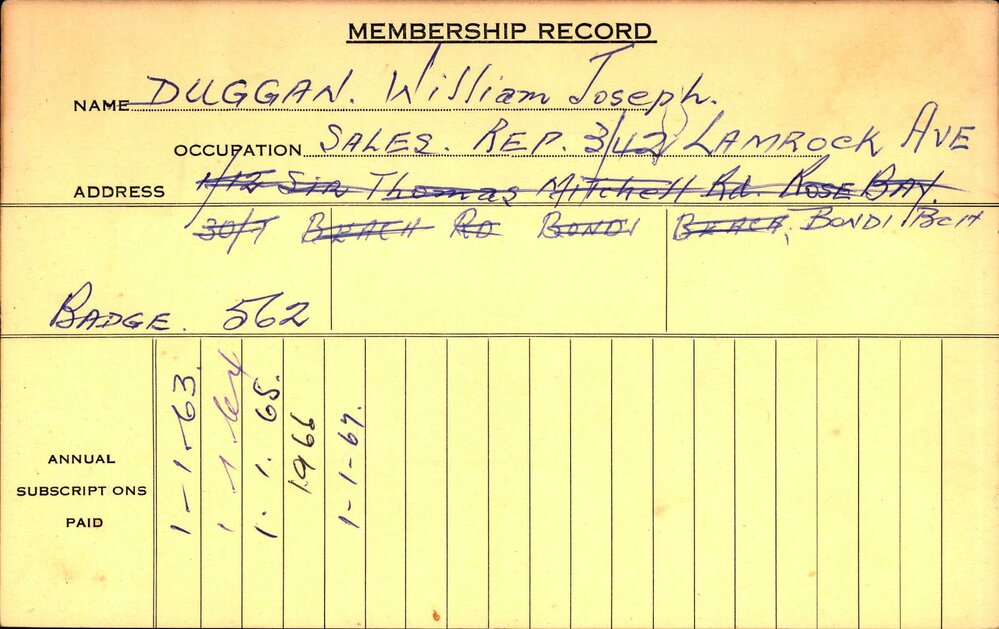 MEMBERSHIP RECORD
NAME DUGGAN. William Joseph.
OCCUPATION SALES. REP. 3/42 LAMROCK AVE
ADDRESS 1/12 Sir Thomas Mitchell Rd. ROSE BAY.
30/7 BEACH RD BONDI BEACH, BONDI BCH
BADGE. 562
ANNUAL
SUBSCRIPT ONS
PAID
1-1-63.
1 1 64
1. 1. 65.
1966
1-1-67.